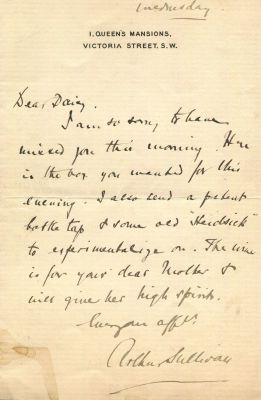 Wednesday.
1, QUEEN'S MANSIONS,
VICTORIA STREET, S.W.
Dear Daisy.
I am so sorry to have
missed you this morning. Here
is the box you wanted for this
evening. I also send a patent
bottle tap & some old "Heidsick"
to experimentalize on. The wine
is for your dear Mother &
will give her high spirits.
Ever yours affly
Arthur Sullivan